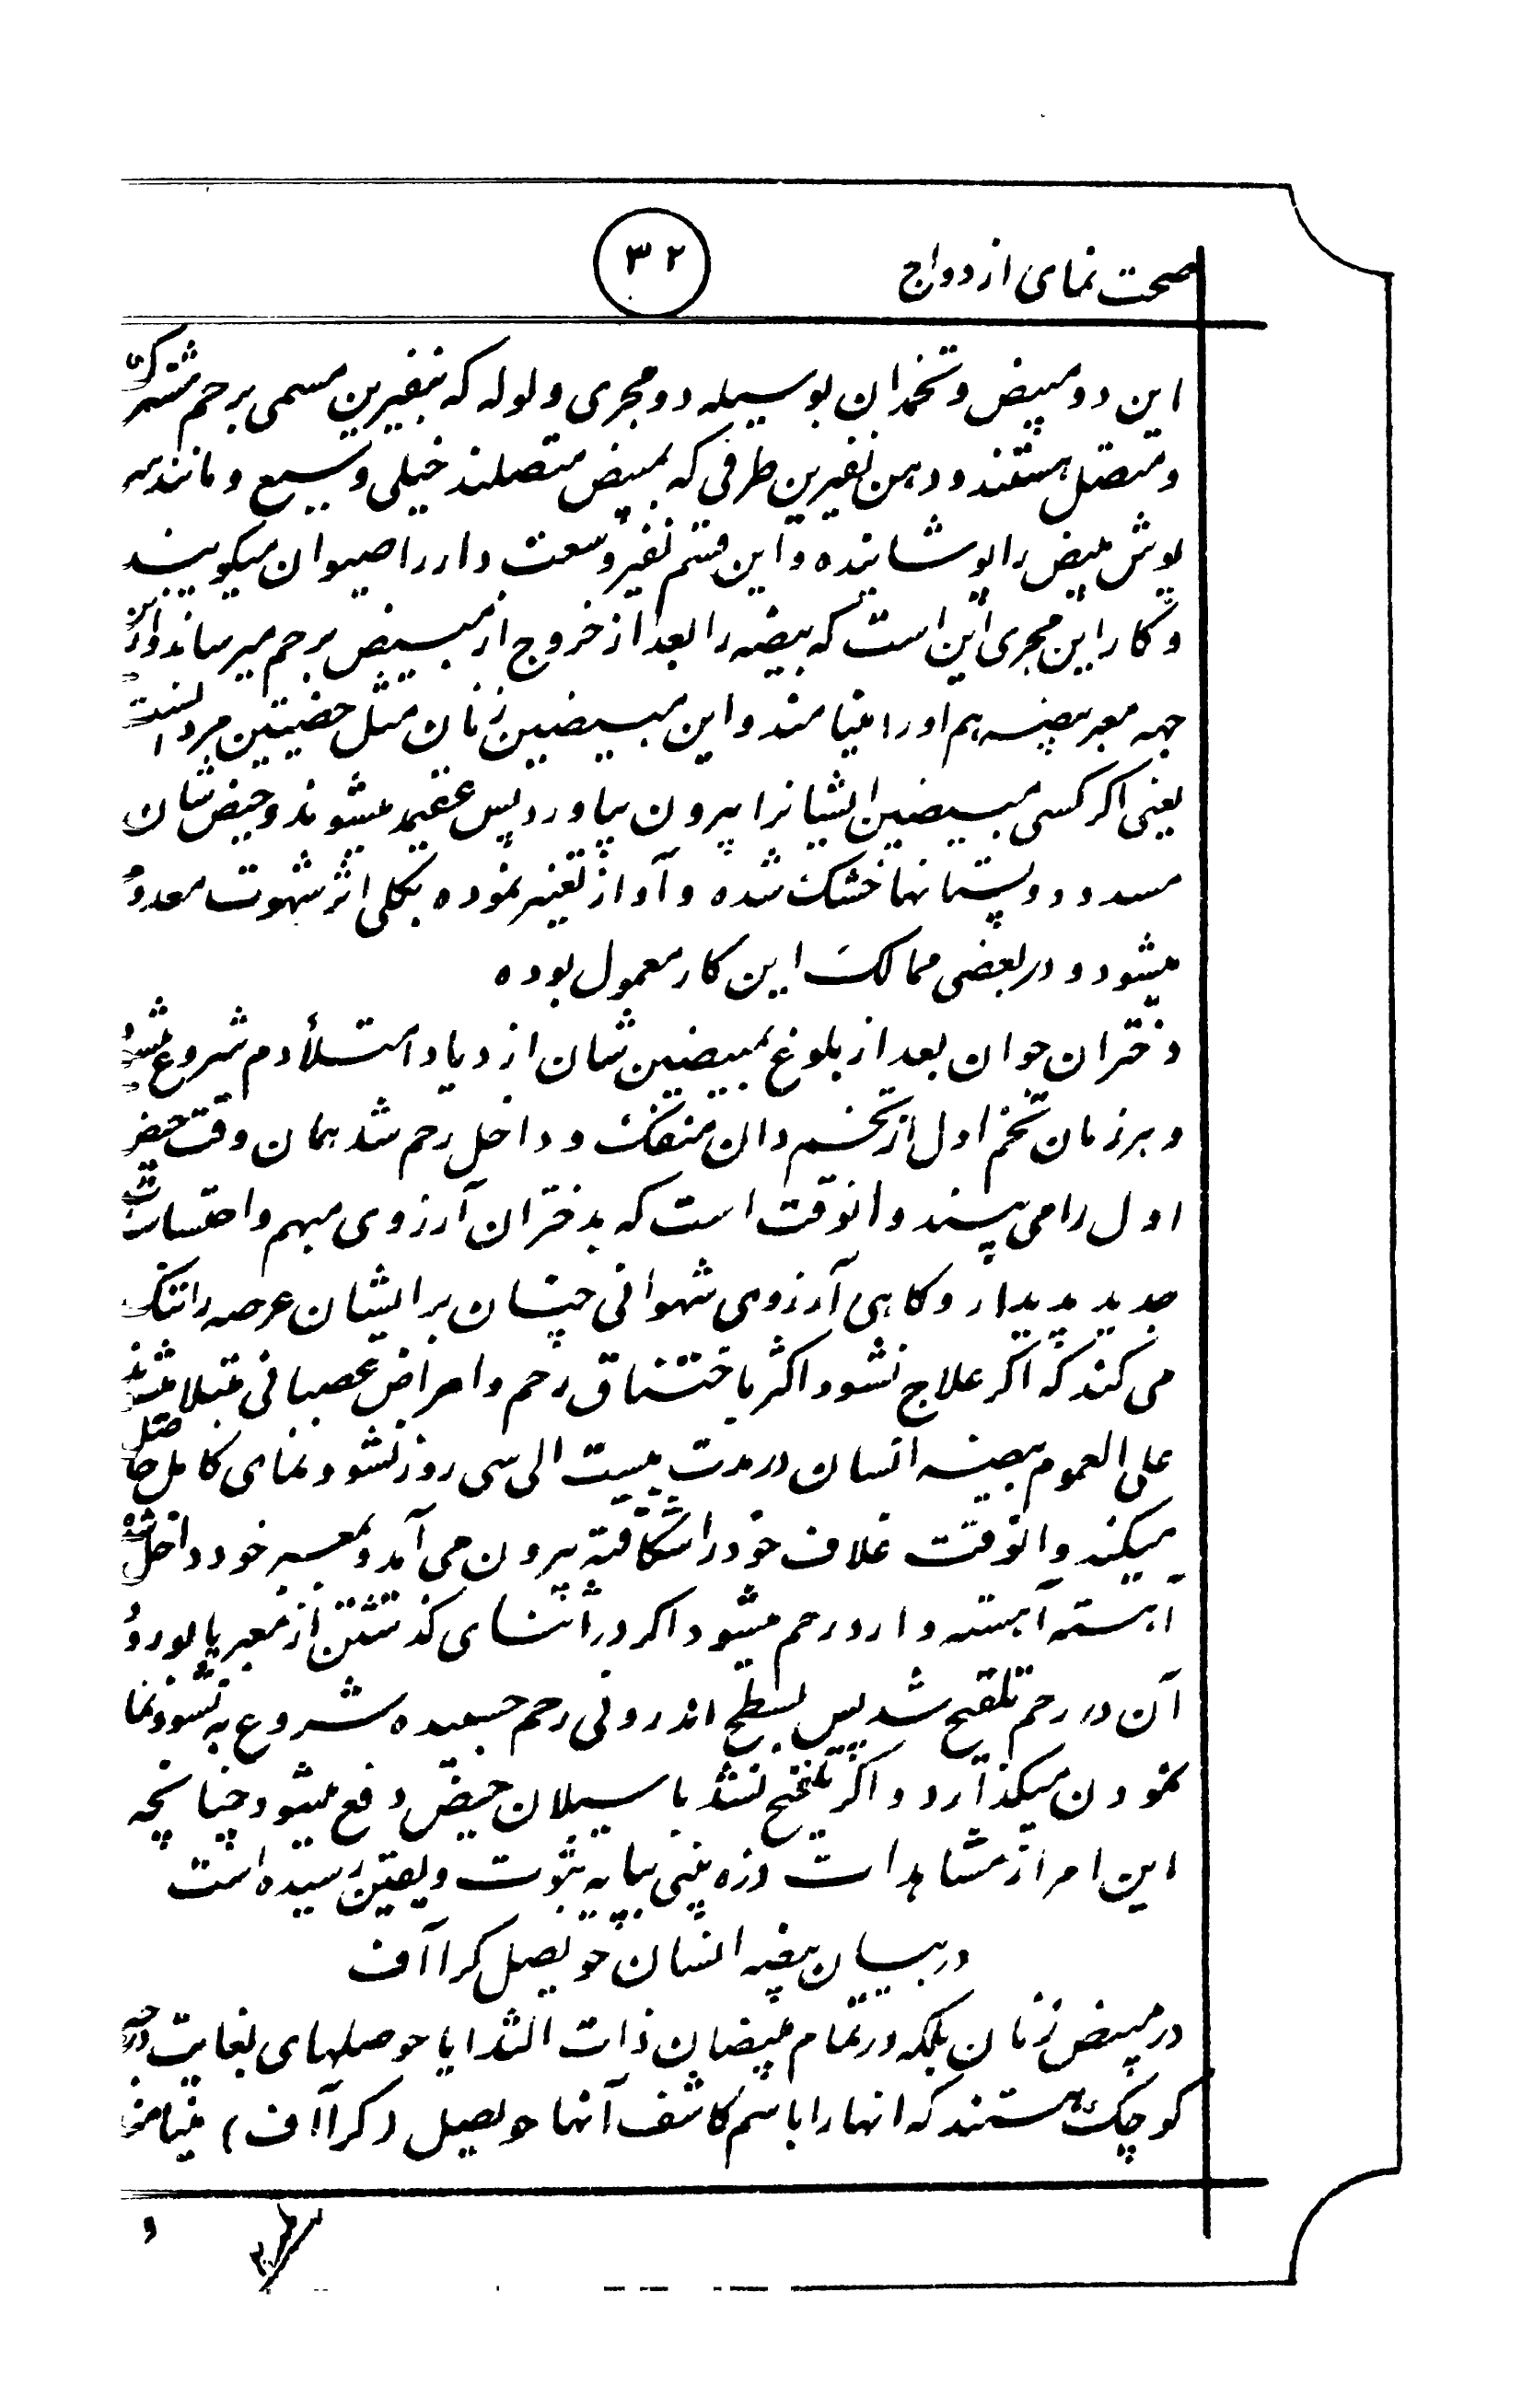 صحت نمای ازدواج
۳۲
این دو مبیض و تخمدان بوسیله دو مجری و لوله که بنفیرین مسمی برحم مشترک
و متصل هستند و دهن نفیرین طرفی که بمبیض متصلند خیلی وسیع و مانند سر
پوش مبیض را پوشانیده و این قسم نفیر وسعت دار را صیوان میکویند
و کار این مجری این است که بیضه را بعد از خروج از مبیض برحم میرساند و از این
جهه معبر بیضه هم او را مینامند و این مبیضین زنان مثل خصیتین مرد است
یعنی اکر کسی مبیضین ایشانرا بیرون بیاورد پس عقیم میشوند و حیض شان
مسدود و پستانها خشک شده و آواز تغییر نموده بکلی اثر شهوت معدوم
میشود و در بعضی ممالک این کار معمول بوده
دختران جوان بعد از بلوغ بمبیضین شان ازدیاد امتلأ دم شروع میشود
و هر زمان تخم اول از تخم دان منفک و داخل رحم شد همان وقت حیض
اول را می بینند و انوقت است که بدختران آرزوی مبهم و احتساسات
جدید پدیدار و کاهی آرزوی شهوانی چنان برایشان عرصه را تنک
می کند که اکر علاج نشود اکثر باختناق رحم و امراض عصبانی مبتلا میشوند
علی العموم بیضه انسان در مدت بیست الی سی روز نشو و نمای کامل حاصل
میکند و انوقت غلاف خود را شکافته بیرون می آمد و بمعبر خود داخل شده
آهسته آهسته وارد رحم میشود اکر در اثنای کذشتن از معبر یا بورود
آن در رحم تلقیح شد پس بسطح اندرونی رحم چسبیده شروع به نشو و نما
نمودن میکذارد و اکر تلقیح نشد با سیلان حیض دفع میشود چنانچه
این امر از مشاهدات ذره بینی بپایه ثبوت و یقین رسیده است
در بیان بیضه انسان حویصل کراآف
در مبیض زنان بلکه در تمام مبیضان ذات الثدایا حوصلهای بغایت
کوچک هستند که انها را باسم کاشف آنها حویصل (کراآف) مینامند
و